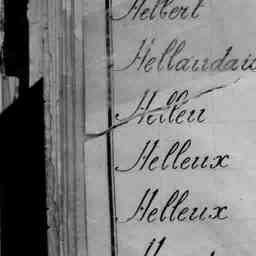 Helbert
Hellaudais
Helleu
Helleux
Helleux